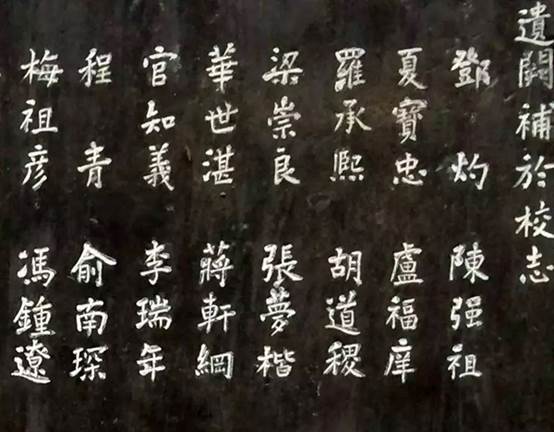 遺闕補於校志
鄧灼 陳强祖
夏寶忠 盧福庠
羅承熙 胡道稷
梁崇良 張夢楷
華世湛 蔣軒綱
官知義 李瑞年
程青 俞南琛
梅祖彦 馮鍾遼